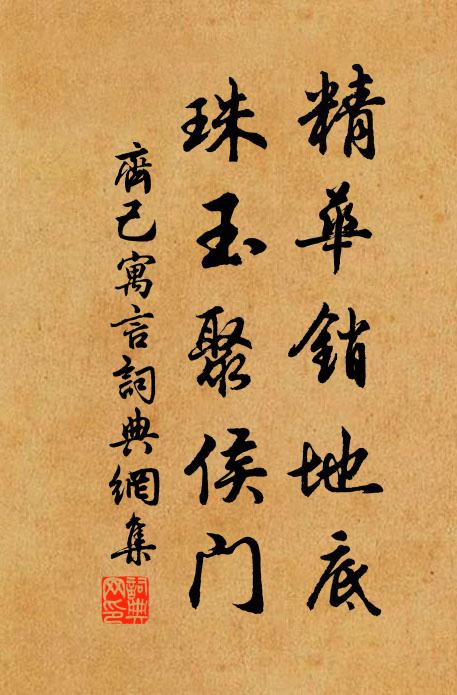 精華銷地底
珠玉聚侯門
齊己寓言詞典網集
詞典网印